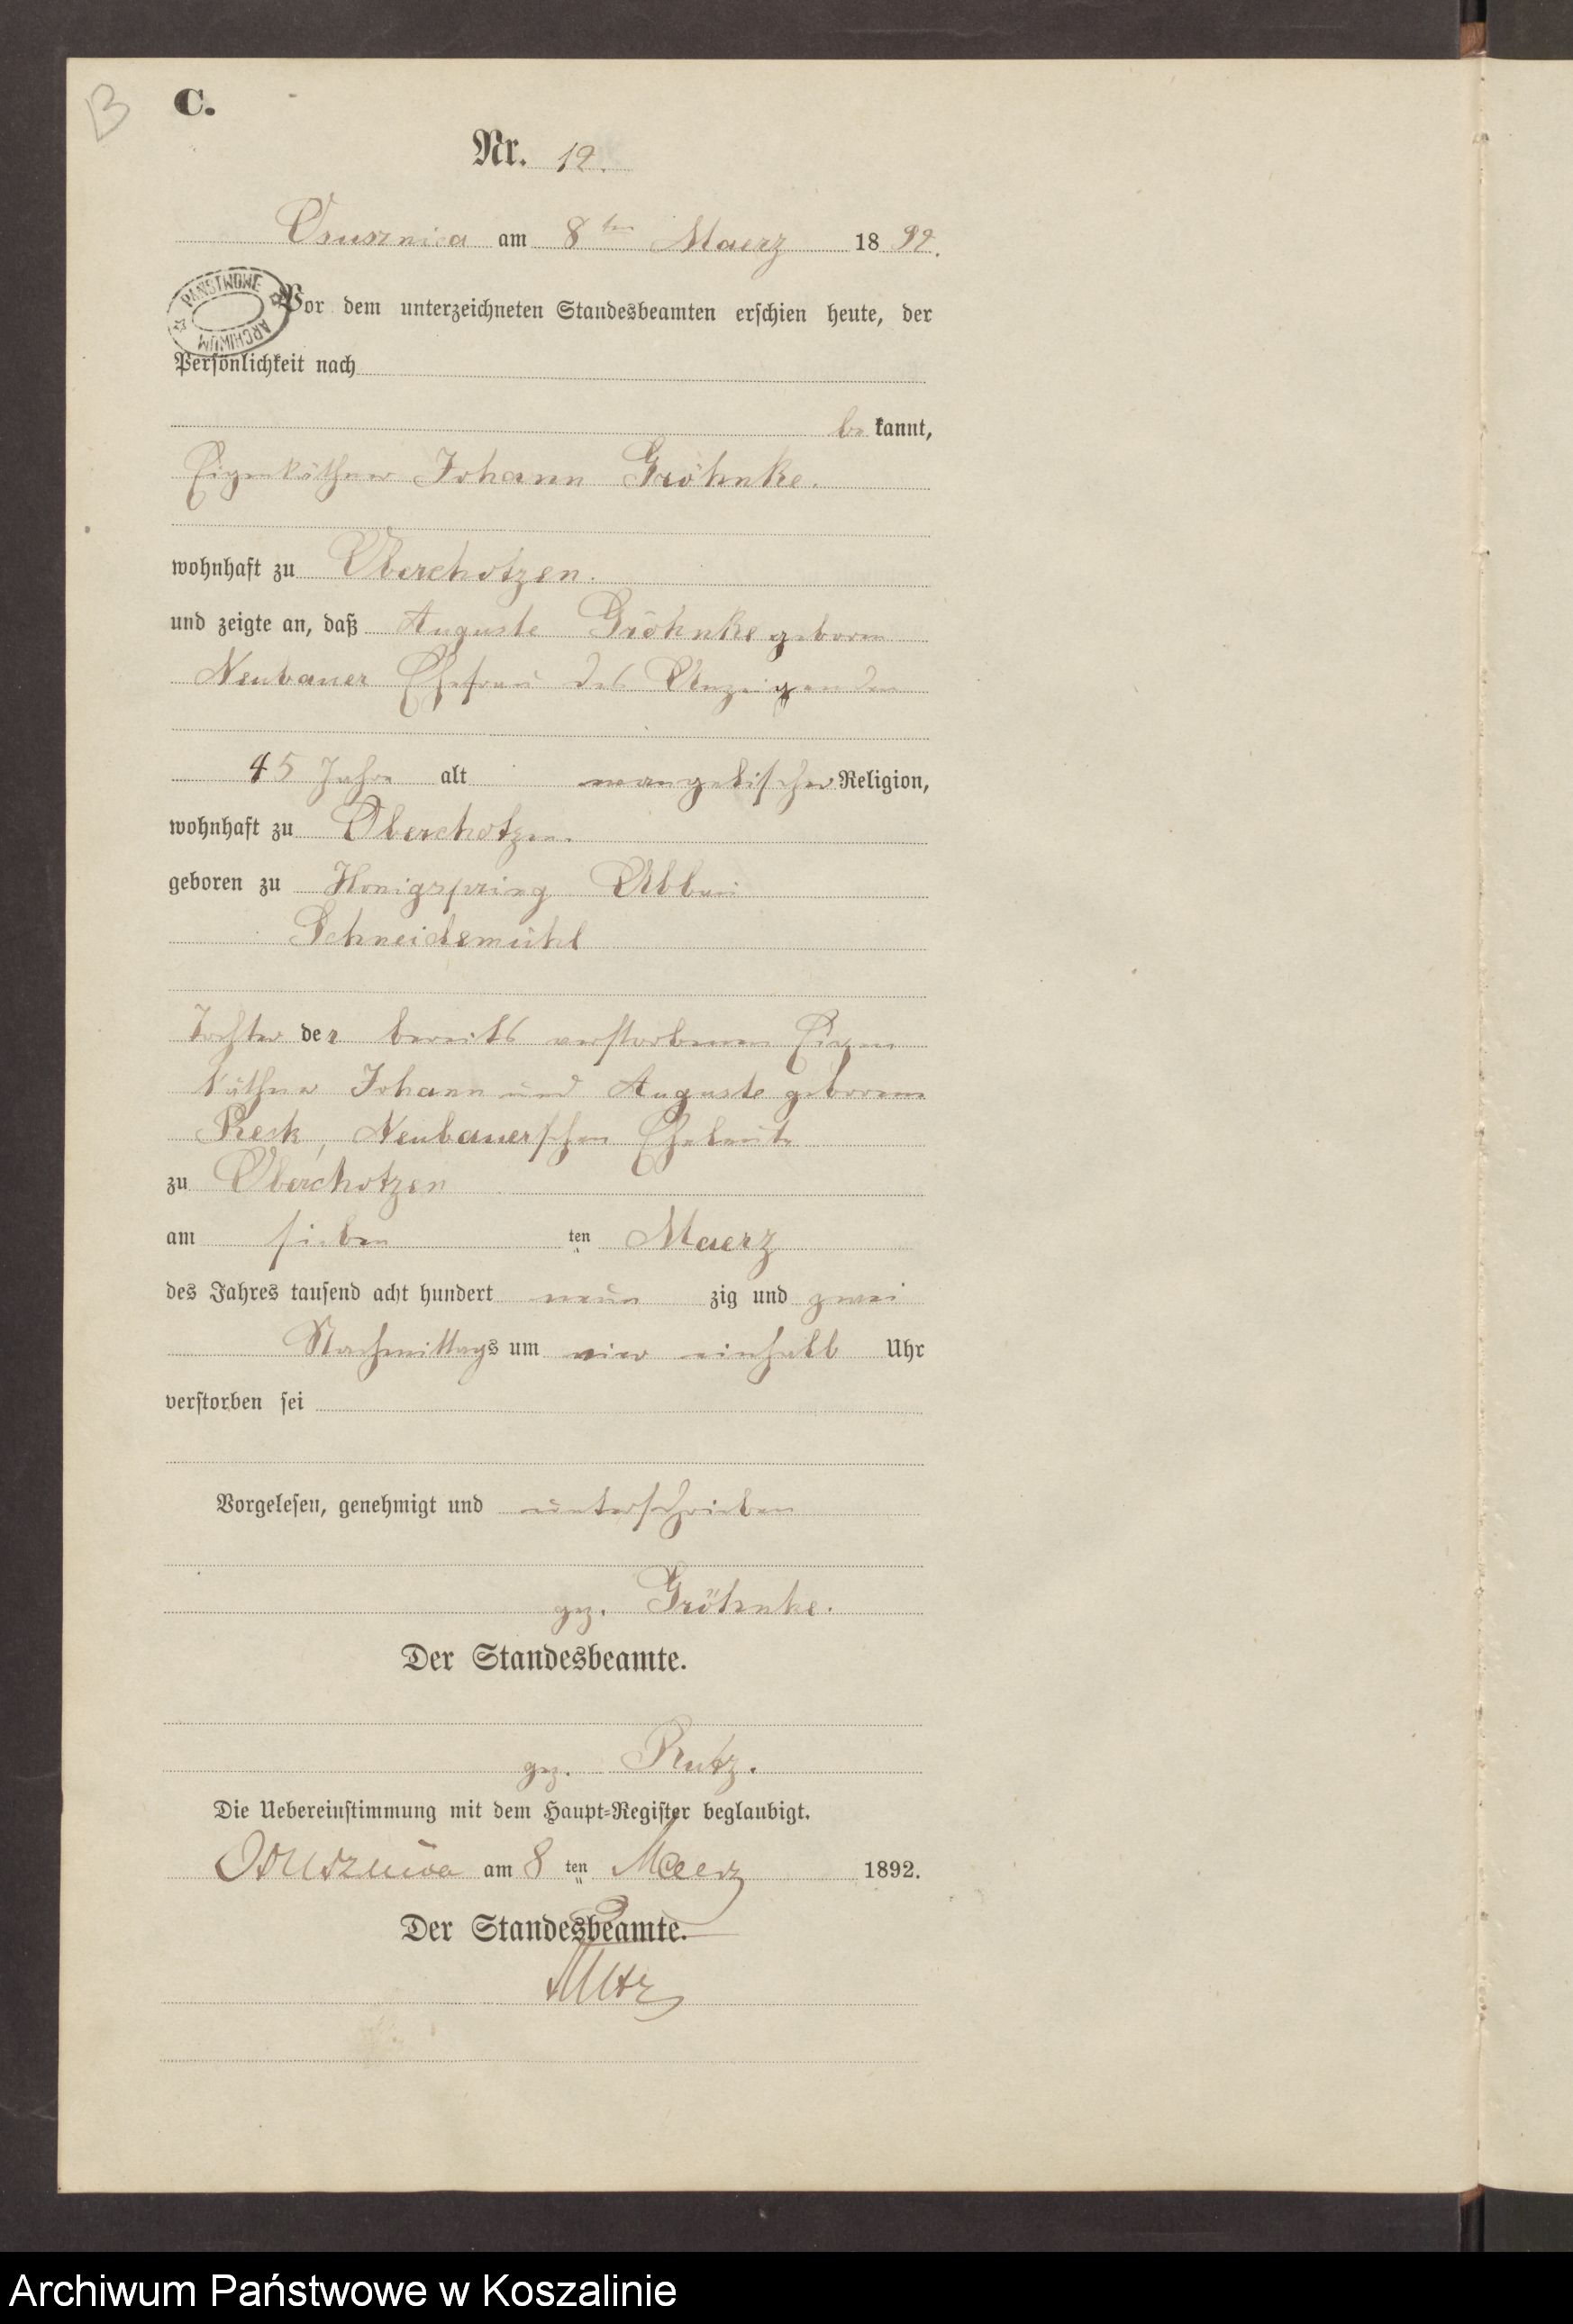 B
C.
Nr. 12.
Osusznica am 8ten Maerz 1892.
PAŃSTWOWE
ARCHIWUM
Vor dem unterzeichneten Standesbeamten erschien heute, der
Persönlichkeit nach
be kannt,
Eigenkäthner Johann Gröhnke.
wohnhaft zu Oberchotzen.
und zeigte an, daß Auguste Gröhnke geboren
Neubauer Ehefrau des Anzeigenden
45 Jahre alt evangelischer Religion,
wohnhaft zu Oberchotzen.
geboren zu Honigspring Abbau
Schneidemühl
Tochter der bereits verstorbenen Eigen
käthner Johann und Auguste geborene
Resk, Neubauerschen Eheleute
zu Oberchotzen
am sieben ten Maerz
des Jahres tausend acht hundert neun zig und zwei
Nachmittags um vier einhalb Uhr
verstorben sei
Vorgelesen, genehmigt und unterschrieben
gez. Gröhnke.
Der Standesbeamte.
gez. Rutz.
Die Uebereinstimmung mit dem Haupt-Register beglaubigt.
Osusznica am 8 ten Maerz 1892.
Der Standesbeamte.
Rutz
Archiwum Państwowe w Koszalinie